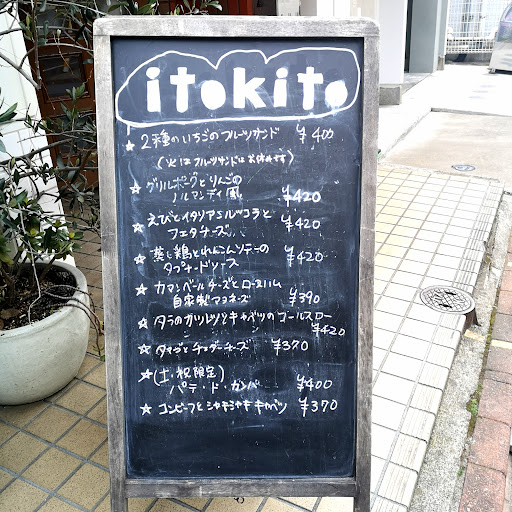 itokito
☆ 2種のいちごのフルーツサンド ¥400
(火はフルーツサンドはお休みです)
☆ グリルポークとりんごの
ノルマンディ風 ¥420
☆ えびとイタリアンルッコラと
フェタチーズ ¥420
☆ 蒸し鶏とれんこんソテーの
タプナードソース ¥420
☆ カマンベールチーズとロースハム
自家製マヨネーズ ¥390
☆ タラのカツレツとキャベツのコールスロー
¥420
☆ タマゴとチェダーチーズ ¥370
☆ (土・祝限定)
パテ・ド・カンパ ¥400
☆ コンビーフとシャキシャキキャベツ ¥370